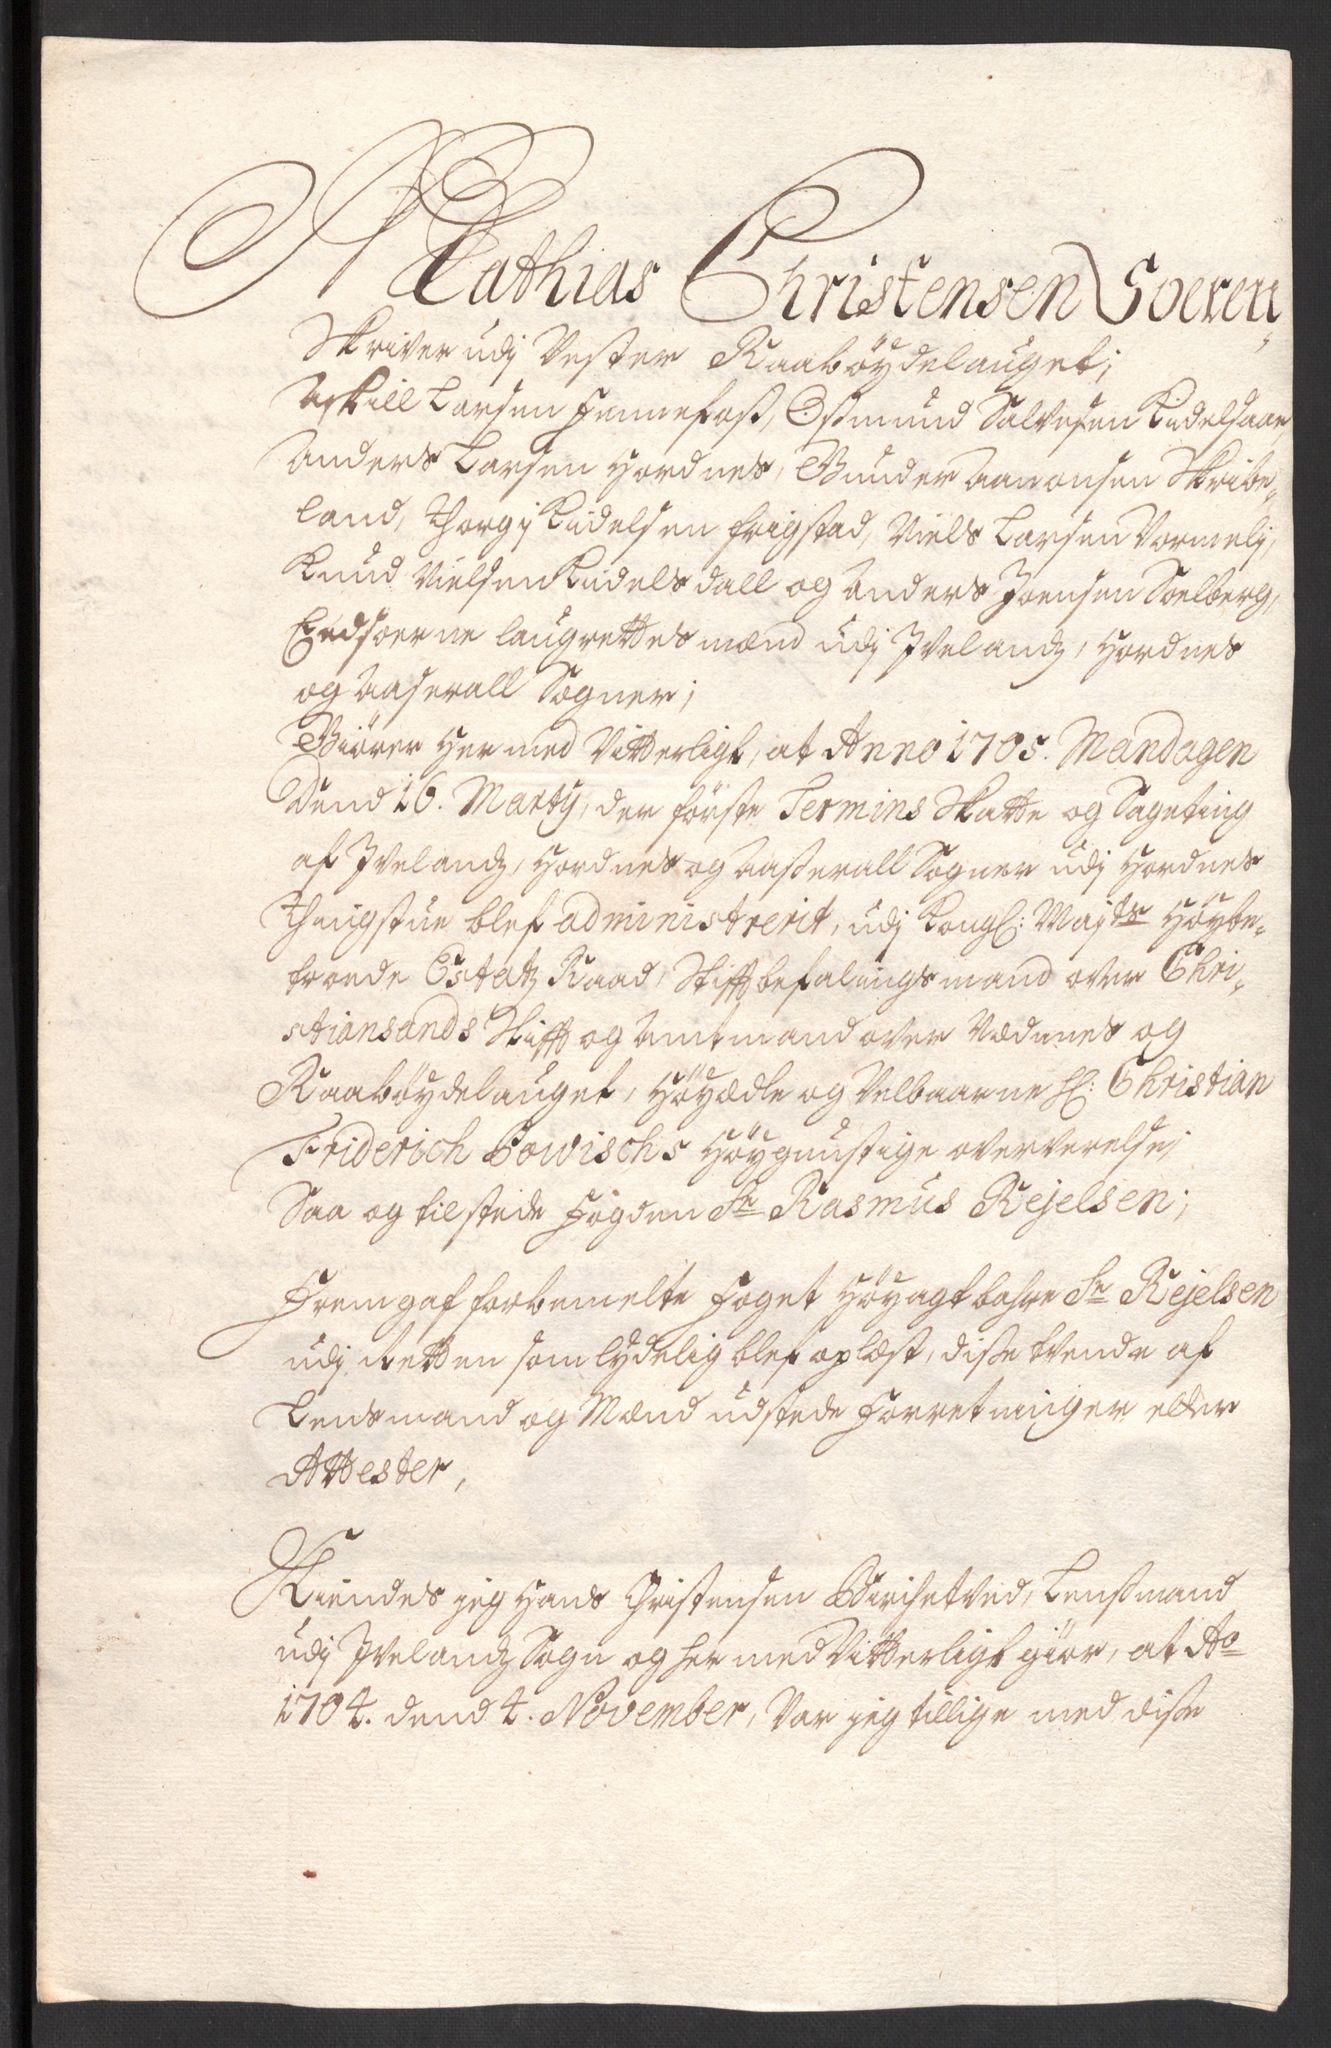 Mathias Christensen Soeren
Skriver udj Vester Raabøydelauget;
Askill Larsen Fennefoss, Ossmund Salvesen Kidelsaae,
Anders Larsen Hordnes, Gunder Aanonsen Skribe„
land, Thorgj Kidelsen Frigstad, Niels Larsen Vormelj,
Knud Nielsen Kidelsdall og Anders Joensen Soelberg,
Eedsoerne laugrettesmænd udj Jvelandz, Hordnes
og Aaserall Sogner;
Giører Her med Vitterligt, at Anno 1705. Mandagen
Dend 16. Martÿ, der første Termins Skatte og Sageting
af Jvelandz, Hordnes og Aasserall Sogner udj Hordnes
Thingstue blef administrerit, udj Kongl: Maÿts Høÿbe„
troede Estatz Raad, Stifftbefalingsmand over Chri„
stiansands Stifft og Amtmand over Nædenes og
Raabøydelauget, Høyædle og Velbaarne Hr: Christian
Friderich Powischs Høygunstige oververelse;
Saa og tilstede Fogden Sr Rasmus Rejelsen;
Fremgaf forbemelte Foget Høyagtbahre Sr Rejelsen
udj Retten som lydelig blef oplæst, disse tvende af
Lensmand og Mænd udstede Forretninger eller
Attester,
Kiendes jeg Hans Christensen Birchetved, Lenssmand
udj Jvelandz Sogn og her med Vitterligt giør, at Ao
1704. dend 4. November, Var jeg tillige med disse